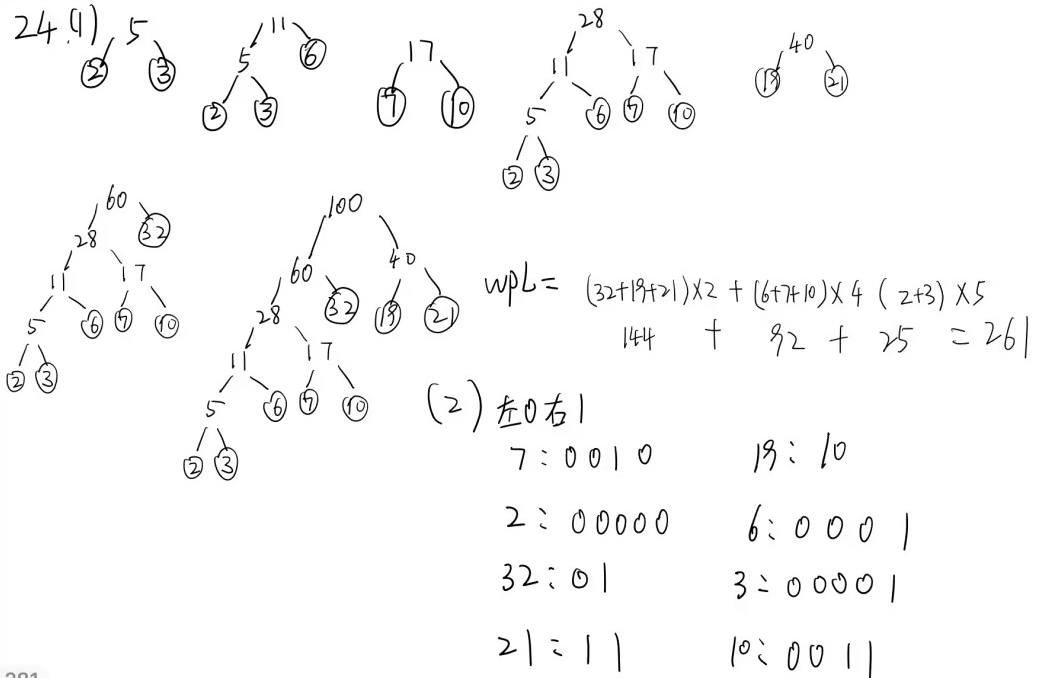 24.(1) 5
2 3
11
5 6
2 3
17
7 10
28
11 17
5 6 7 10
2 3
40
19 21
60
28 32
11 17
5 6 7 10
2 3
100
60 40
28 32 19 21
11 17
5 6 7 10
2 3
WPL= (32+19+21)×2 + (6+7+10)×4 (2+3)×5
144 + 92 + 25 = 261
(2) 左0右1
7:0010 19:10
2:00000 6:0001
32:01 3:00001
21:11 10:0011